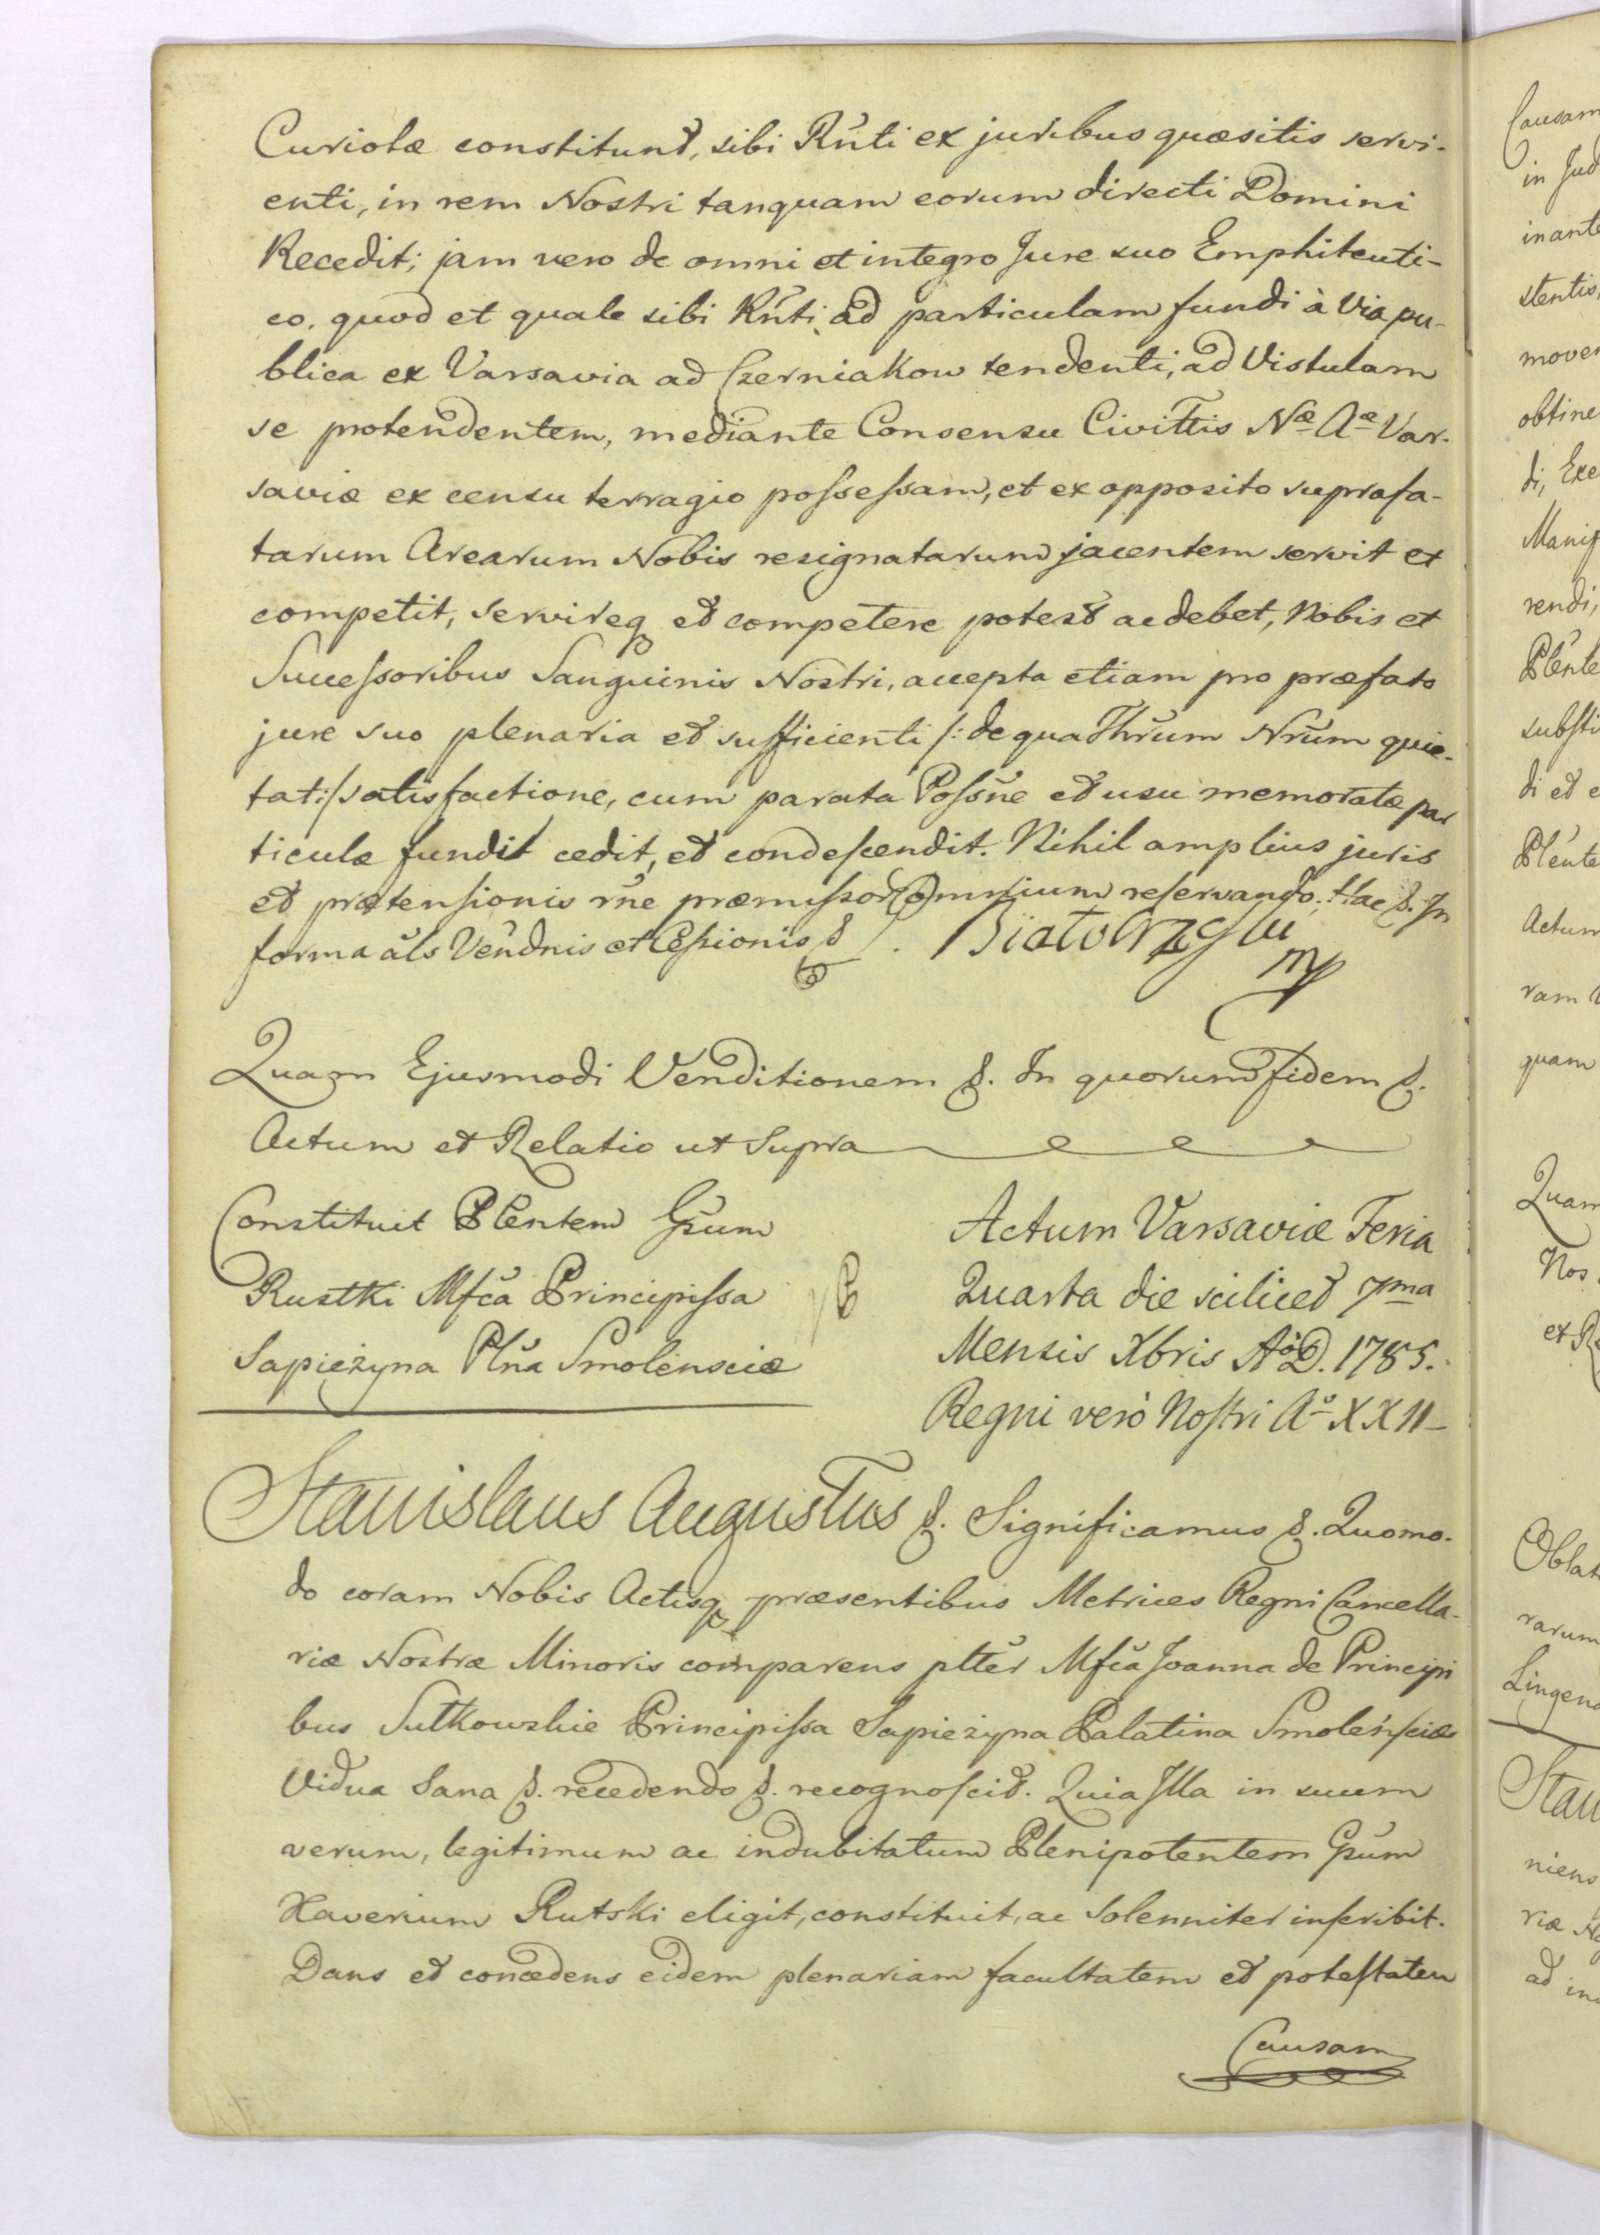 Curiolæ constitunt, sibi Rñti ex juribus quæsitis servi-
enti, in rem Nostri tanquam eorum directi Domini
Recedit; jam vero de omni et integro Jure suo Emphiteuti-
co, quod et quale sibi Rñti ad particulam fundi à via pu-
blica ex Varsavia ad Czerniakow tendenti, ad Vistulam
se protendentem, mediante Consensu Civittis Næ Aæ Var-
saviæ ex censu terragio possessam, et ex opposito suprafa-
tarum Arearum Nobis resignatarum jacentem servit et
competit, servireq et competere potest ac debet, Nobis et
Successoribus Sanguinis Nostri, accepta etiam pro præfato
jure suo plenaria et sufficienti /: de qua Thrum Nrum quie-
tat :/ satisfactione, cum parata Possñe et usu memoratæ par
ticulæ fundi cedit, et condescendit. Nihil amplius juris
et prætensionis rñe præmissor omnium reservando. Hac &. In
forma als Vendnis et Cessionis &.
Quam Ejusmodi Venditionem &. In quorum fidem &.
Actum et Relatio ut Supra
Constituit Plentem Gsum
Rustki Mfca Principissa
Sapieżyna Plña Smolensciæ
Actum Varsaviæ Feria
Quarta die scilicet 7ma
Mensis Xbris Aô D. 1785.
Regni verò Nostri Aô XXII
Stanislaus Augustus &. Significamus &. Quomo-
do coram Nobis Actisq præsentibus Metrices Regni Cancella-
riæ Nostræ Minoris comparens plter Mfca Joanna de Principi
bus Sułkowskie Principissa Sapieżyna Palatina Smolensciæ
Vidua Sana &. recedendo &. recognoscit. Quia Illa in suum
verum, legitimum ac indubitatum Plenipotentem Gsum
Xaverium Rutski eligit, constituit, ac Solenniter inscribit.
Dans et concedens eidem plenariam facultatem et potestatem
Causam